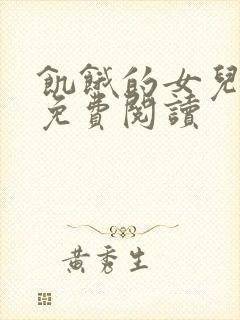 飢餓的女兒
免費閱讀
黃秀生